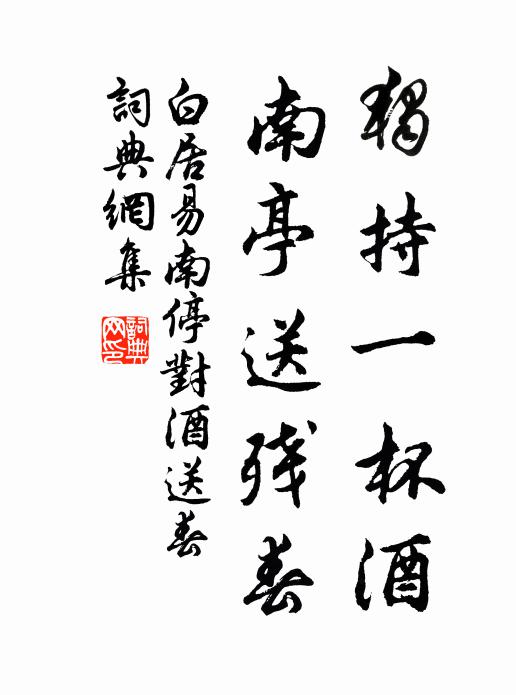 獨持一杯酒
南亭送残春
白居易南停對酒送春
詞典網集
詞典网印